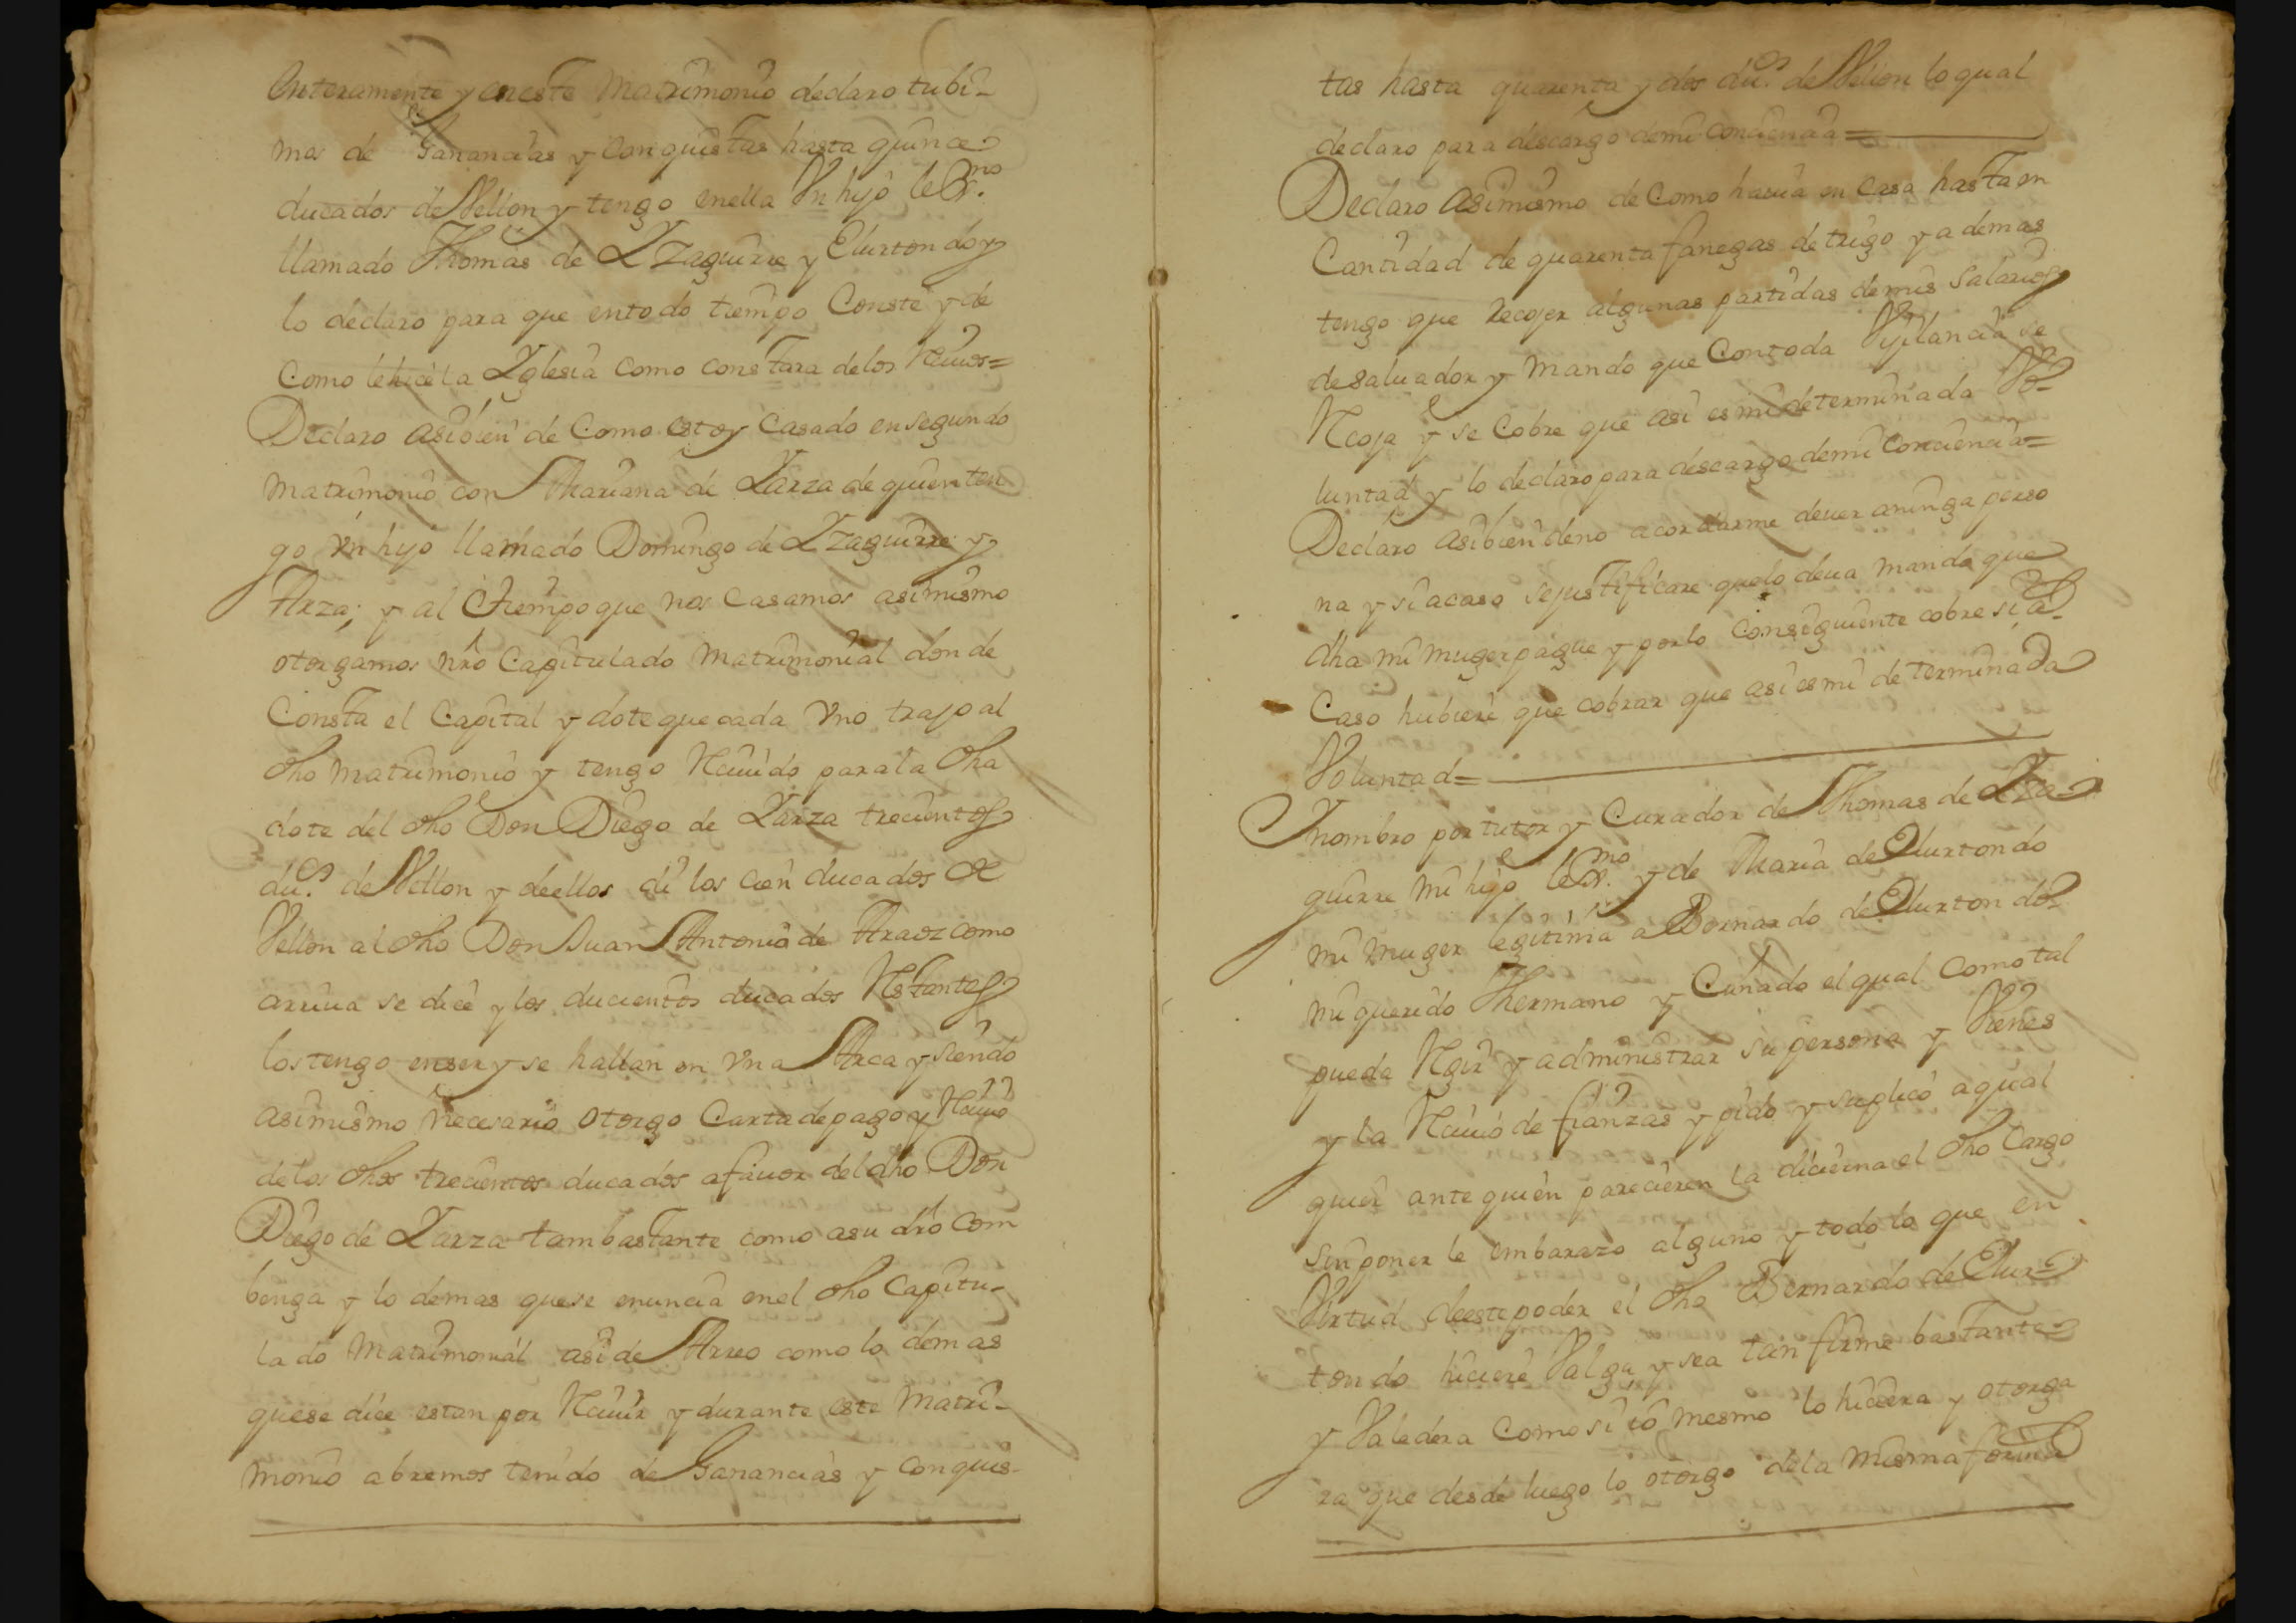 Enteramente y en este Matrimonio declaro tubi-
mos de Ganancias y Conquistas hasta quince
ducados de Vellon y tengo en ella Vn hijo
llamado Thomas de Yzaguirre y Elurtondo y
lo declaro para que en todo tiempo Conste y de
Como le hice la Yglesia como constara de los Reciuos=
Declaro asibien de Como estoy Casado en segundo
Matrimonio con Mariana de Yarza de quien ten
go vn hijo llamado Domingo de Yzaguirre y
Arza; y al Tiempo que nos Casamos asimismo
otorgamos nro Capitulado Matrimonial donde
Consta el Capital y dote que cada Vno trajo al
dho Matrimonio y tengo Reciuido para la dha
dote del dho Don Diego de Yarza trecientos
du.s de Vellon y de ellos di los cien ducados de
Vellon al dho Don Juan Antonio de Araoz como
arriua se dice y los ducientos ducados Restantes
los tengo en ser y se hallan en Vna Arca y siendo
asimismo necesario otorgo Carta de pago y Reciuo
de los dhos trecientos ducados a fauor del dho Don
Diego de Yarza tam bastante como a su dro Com
benga y lo demas que se enuncia en el dho Capitu-
lado Matrimonial asi de Arreo como lo demas
que se dice estan por Reciuir y durante este Matri-
monio abremos tenido de Ganancias y Conquis-
tas hasta quarenta y dos du.s de Vellon lo qual
declaro para descargo de mi conciencia=
Declaro Asimismo de Como hauia en Casa hasta en
Cantidad de quarenta fanegas de trigo y ademas
tengo que Recojer algunas partidas de mis Salarios
de saluador y Mando que Con toda Vijilancia se
Recoja y se Cobre que asi es mi determinada Vo-
luntad y lo declaro para descargo de mi Conciencia=
Declaro asibien de no acordarme deuer a ninga perso
na y si acaso se justificare que lo deua mando que
dha mi muger pague y por lo Consiguiente cobre si a-
Caso hubiere que cobrar que asi es mi determinada
Voluntad=
Y nombro por tutor y Curador de Thomas de Yza-
guirre mi hijo y de Maria de Elurtondo
mi muger legitima a Bernardo de Elurtondo
mi querido Hermano y Cuñado el qual Como tal
pueda Regir y administrar su persona y Vienes
y la Reciuo de fianzas y pido y suplico a qual
quier ante quien parecieren la dicierna el dho Cargo
sin poner le embarazo alguno y todo lo que en
Virtud de este poder el dho Bernardo de Elur-
tondo hiciere Valga y sea tan firme bastante
y Valedera Como si io mesmo lo hiciera y otorga
ra que desde luego lo otorgo de la misma forma